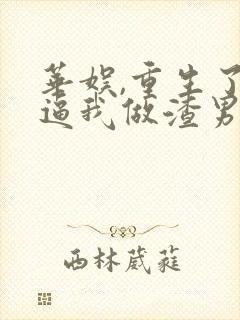 华娱,重生了
逼我做渣男
西林葳蕤